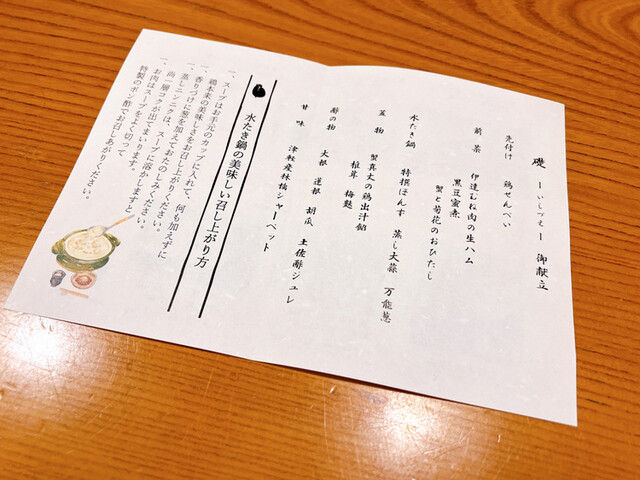 礎 ーいしずえー 御献立
先付け 鶏せんべい
前菜 伊達むね肉の生ハム
黒豆蜜煮
蟹と菊花のおひたし
水たき鍋 特撰ぽんず 蒸し大蒜 万能葱
蓋物 蟹真丈の鶏出汁餡
椎茸 梅麩
酢の物 大根 蓮根 胡瓜 土佐酢ジュレ
甘味 津軽産林檎シャーベット
水たき鍋の美味しい召し上がり方
一、スープはお手元のカップに入れて、何も加えずに
鶏本来の美味しさをお召し上がりください。
一、香りづけに葱を加えておたのしみください。
一、蒸しニンニクは、スープに溶かしますと
尚一層コクが出てまいります。
一、お肉はスープをよく切って
特製のポン酢でお召しあがりください。